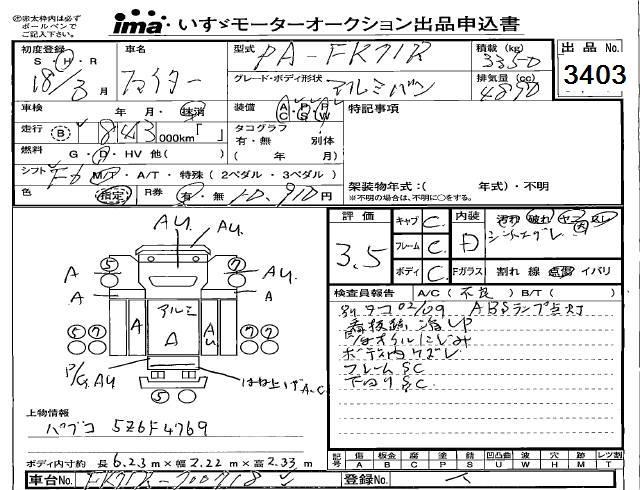 ◎※太枠内は必ず
ボールペンで
ご記入下さい。
ima いすゞモーターオークション出品申込書
初度登録
S・H・R
18/3月
車名
ファイター
型式
PA-FK71R
グレード・ボディ形状
アルミバン
積載(kg)
3350
排気量(cc)
4890
出品No.
3403
車検
年・月・抹消
装備
AC PS PW
特記事項
走行 B 843 000km「 」
タコグラフ
有・無 別体
( 年 月)
燃料 G・D・HV 他( )
シフト F6 MT・A/T・特殊(2ペダル・3ペダル)
色 指定
R券 有・無 10,910円
架装物年式:( 年式)・不明
※不明の場合は、不明に○をする。
評価
3.5
キャブ C
フレーム C
ボディ C
内装
D
汚れ 破れ
Fガラス 割れ 線 点傷 イバリ
検査員報告 A/C(不良)B/T( )
別タコ02/09 ABSランプ点灯
看板跡
オイルにじみ
フレームSC
下回りSC
AU. AU.
⑤ ⑦
A A AU. A
アルミ
A A AU
⑤⑦ ⑦⑦
P/G.AU
はね上げA.C
⑤
上物情報
パブコ 5Z6F4769
ボディ内寸約 長6.23m×幅2.22m×高2.33m
記号 傷A 板金B 腐C 塗P 錆S 凹凸曲U 波W 穴H 跡M レツ割T
車台No. FK71R-700718
登録No.